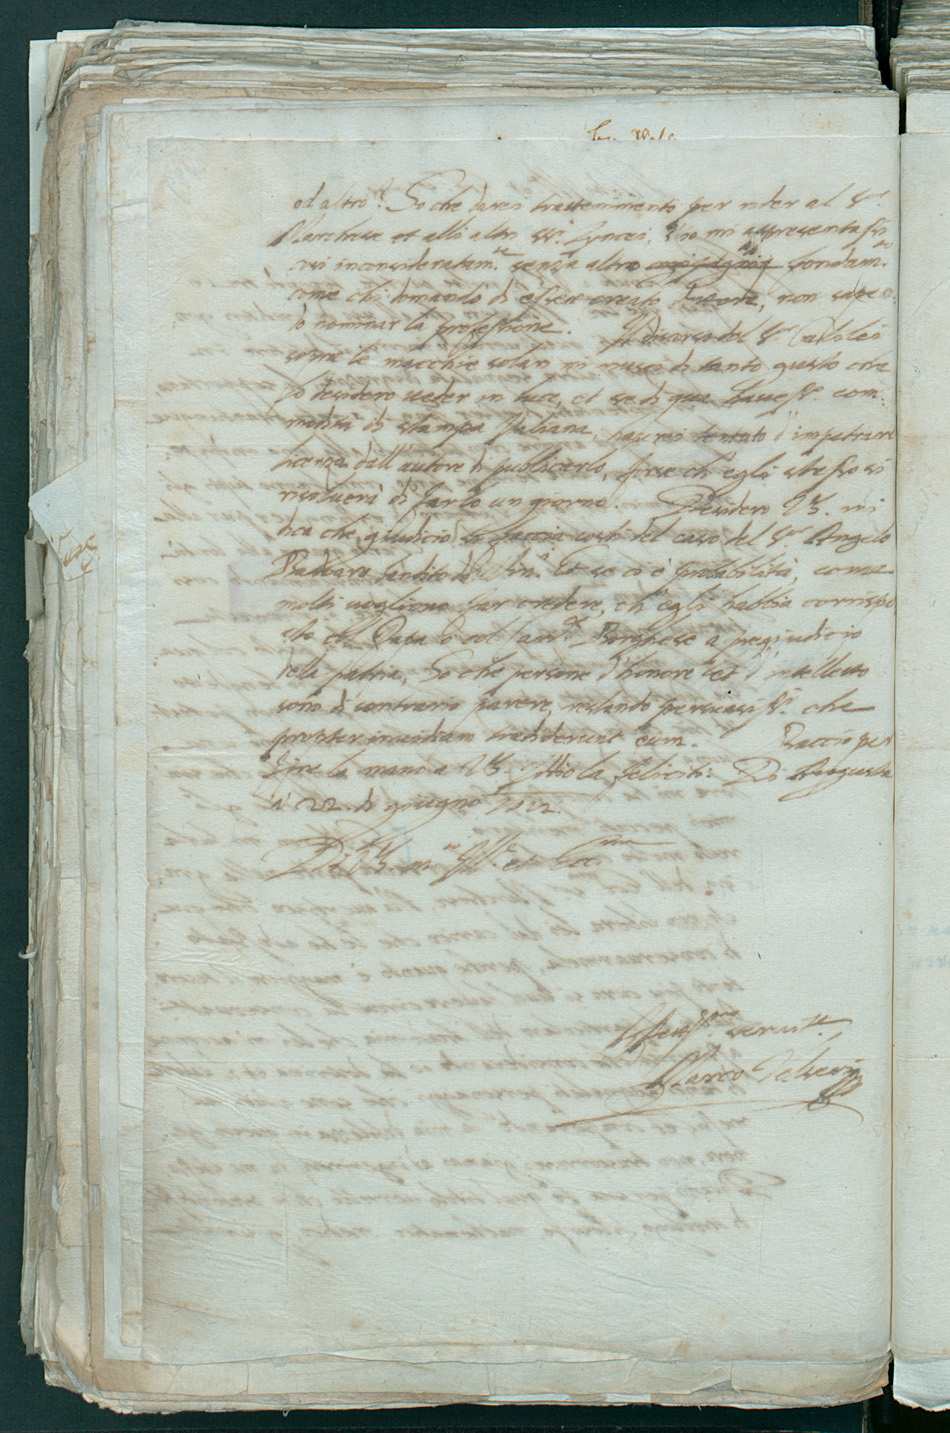 od altro? So che darei trattenimento per rider al S.r
Marchese et alli altri SS.ri Lyncei, s'io mi appresentassi
così inconsideratam.te senza altro fondam.to
come chi domandò di esser creato dottore, non sapen
do nominar la professione. Il discorso del S.r Galilei
sopra le macchie solari mi riuscì di tanto gusto che
lo desidero veder in luce, et se di qua havess.o com:
modità di stampa Italiana, havrei tentato d'impetrare
licenza dall'autore di publicarlo, forse ch'egli stesso si
risolverà di farlo un giorno. Desidero V.S. mi
dica che giudicio si faccia costì del caso del S.r Angelo
Badoaro bandito di Et se ci è probabilità, come
molti vogliono far credere, ch'egli habbia corrispo
sto col Papa o col Card. Borghese a pregiudicio
della patria, So che persone d'honore et d'intelletto
sono di contrario parere, restando che
propter invidiam tradiderunt eum. Baccio per
fine la mano a V.S. Iddio la feliciti. Di Augusta
à 22 di giugno 1612.
Di V.S. m.to Ill.e et Ecc.ma
Affett.mo servit.re
Marco Velseri